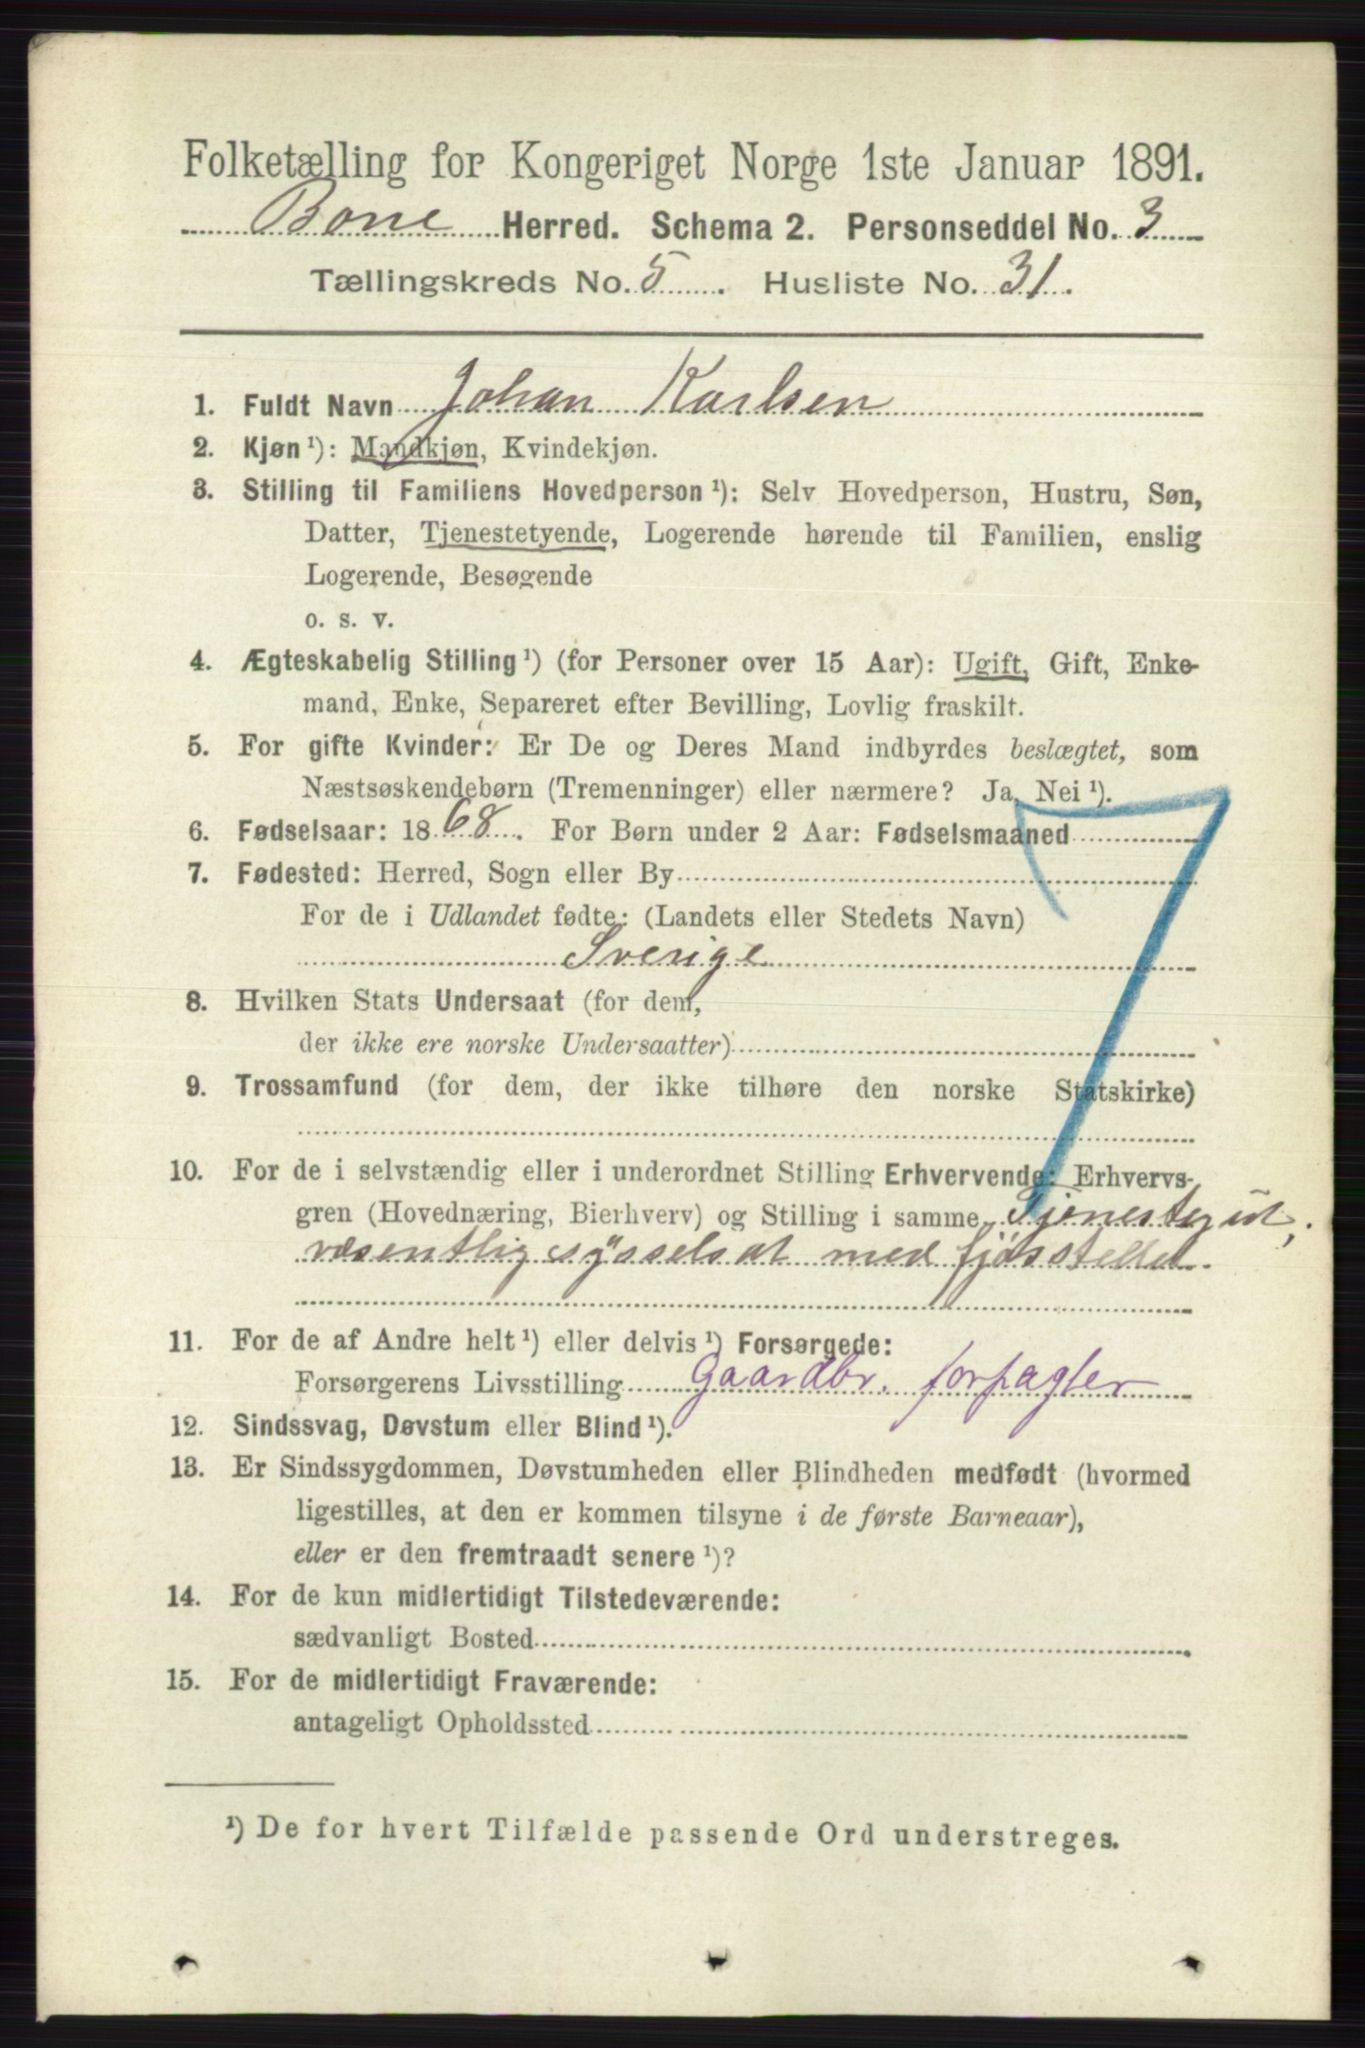 Folketælling for Kongeriget Norge 1ste Januar 1891.
Borre Herred. Schema 2. Personseddel No. 3
Tællingskreds No. 5. Husliste No. 31.
1. Fuldt Navn Johan Karlsen
2. Kjøn ¹): Mandkjøn, Kvindekjøn.
3. Stilling til Familiens Hovedperson ¹): Selv Hovedperson, Hustru, Søn,
Datter, Tjenestetyende, Logerende hørende til Familien, enslig
Logerende, Besøgende
o. s. v.
4. Ægteskabelig Stilling ¹) (for Personer over 15 Aar): Ugift, Gift, Enke-
mand, Enke, Separeret efter Bevilling, Lovlig fraskilt.
5. For gifte Kvinder: Er De og Deres Mand indbyrdes beslægtet, som
Næstsøskendebørn (Tremenninger) eller nærmere? Ja, Nei ¹).
6. Fødselsaar: 1868. For Børn under 2 Aar: Fødselsmaaned
7. Fødested: Herred, Sogn eller By
For de i Udlandet fødte: (Landets eller Stedets Navn)
Sverige
8. Hvilken Stats Undersaat (for dem,
der ikke ere norske Undersaatter)
9. Trossamfund (for dem, der ikke tilhøre den norske Statskirke)
10. For de i selvstændig eller i underordnet Stilling Erhvervende: Erhvervs-
gren (Hovednæring, Bierhverv) og Stilling i samme Tjenestegut,
væsentlig sysselsat med fjøsstellet.
11. For de af Andre helt ¹) eller delvis ¹) Forsørgede:
Forsørgerens Livsstilling Gaardbr. forpagter
12. Sindssvag, Døvstum eller Blind ¹).
13. Er Sindssygdommen, Døvstumheden eller Blindheden medfødt (hvormed
ligestilles, at den er kommen tilsyne i de første Barneaar),
eller er den fremtraadt senere ¹)?
14. For de kun midlertidigt Tilstedeværende:
sædvanligt Bosted
15. For de midlertidigt Fraværende:
antageligt Opholdssted
¹) De for hvert Tilfælde passende Ord understreges.
7